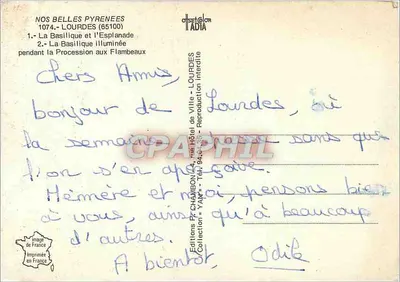 NOS BELLES PYRENEES
1074.- LOURDES (65100)
1.- La Basilique et l'Esplanade
2.- La Basilique illuminée
pendant la Procession aux Flambeaux
Chers Amis,
bonjour de Lourdes, où
la semaine passe sans que
l'on s'en aperçoive.
Mémère et moi, pensons bien
à vous, ainsi qu'à beaucoup
d'autres.
A bientôt, Odile
Editions P. CHAMBON, rue Hôtel de Ville - LOURDES
Collection "YAN" - Tél. 94 - Reproduction interdite
CPAPHIL
Image
de France
Imprimée
en France